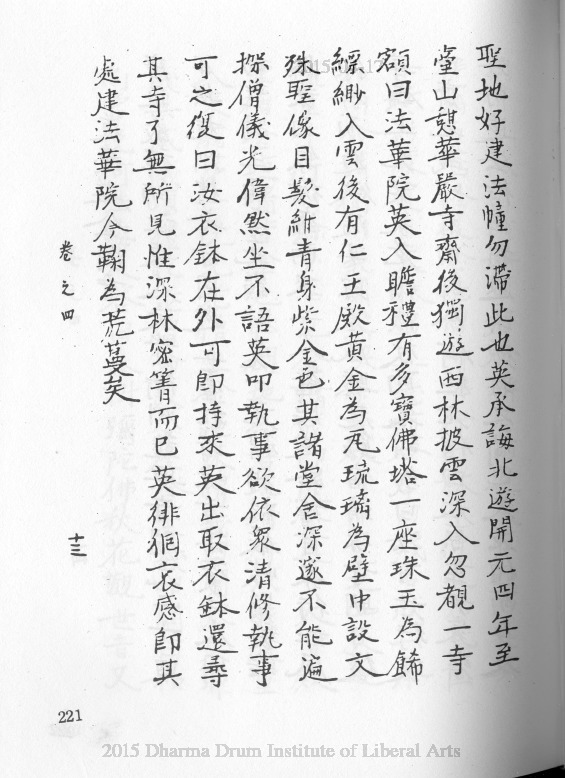 聖地好建法幢勿滯此也英承誨北遊開元四年至
臺山憇華嚴寺齋後獨遊西林披雲深入忽覩一寺
額曰法華院英入瞻禮有多寶佛塔一座珠玉為餙
縹緲入雲後有仁王殿黃金為瓦琉璃為壁中設文
殊聖像目髮紺青身紫金色其諸堂舍深邃不能遍
探僧儀光偉黙坐不語英叩執事欲依衆清修執事
可之復曰汝衣鉢在外可即持來英出取衣鉢還尋
其寺了無所見惟深林密箐而已英徘徊哀感即其
處建法華院今鞠為荒蔓矣
卷之四
十三
221
2015 Dharma Drum Institute of Liberal Arts